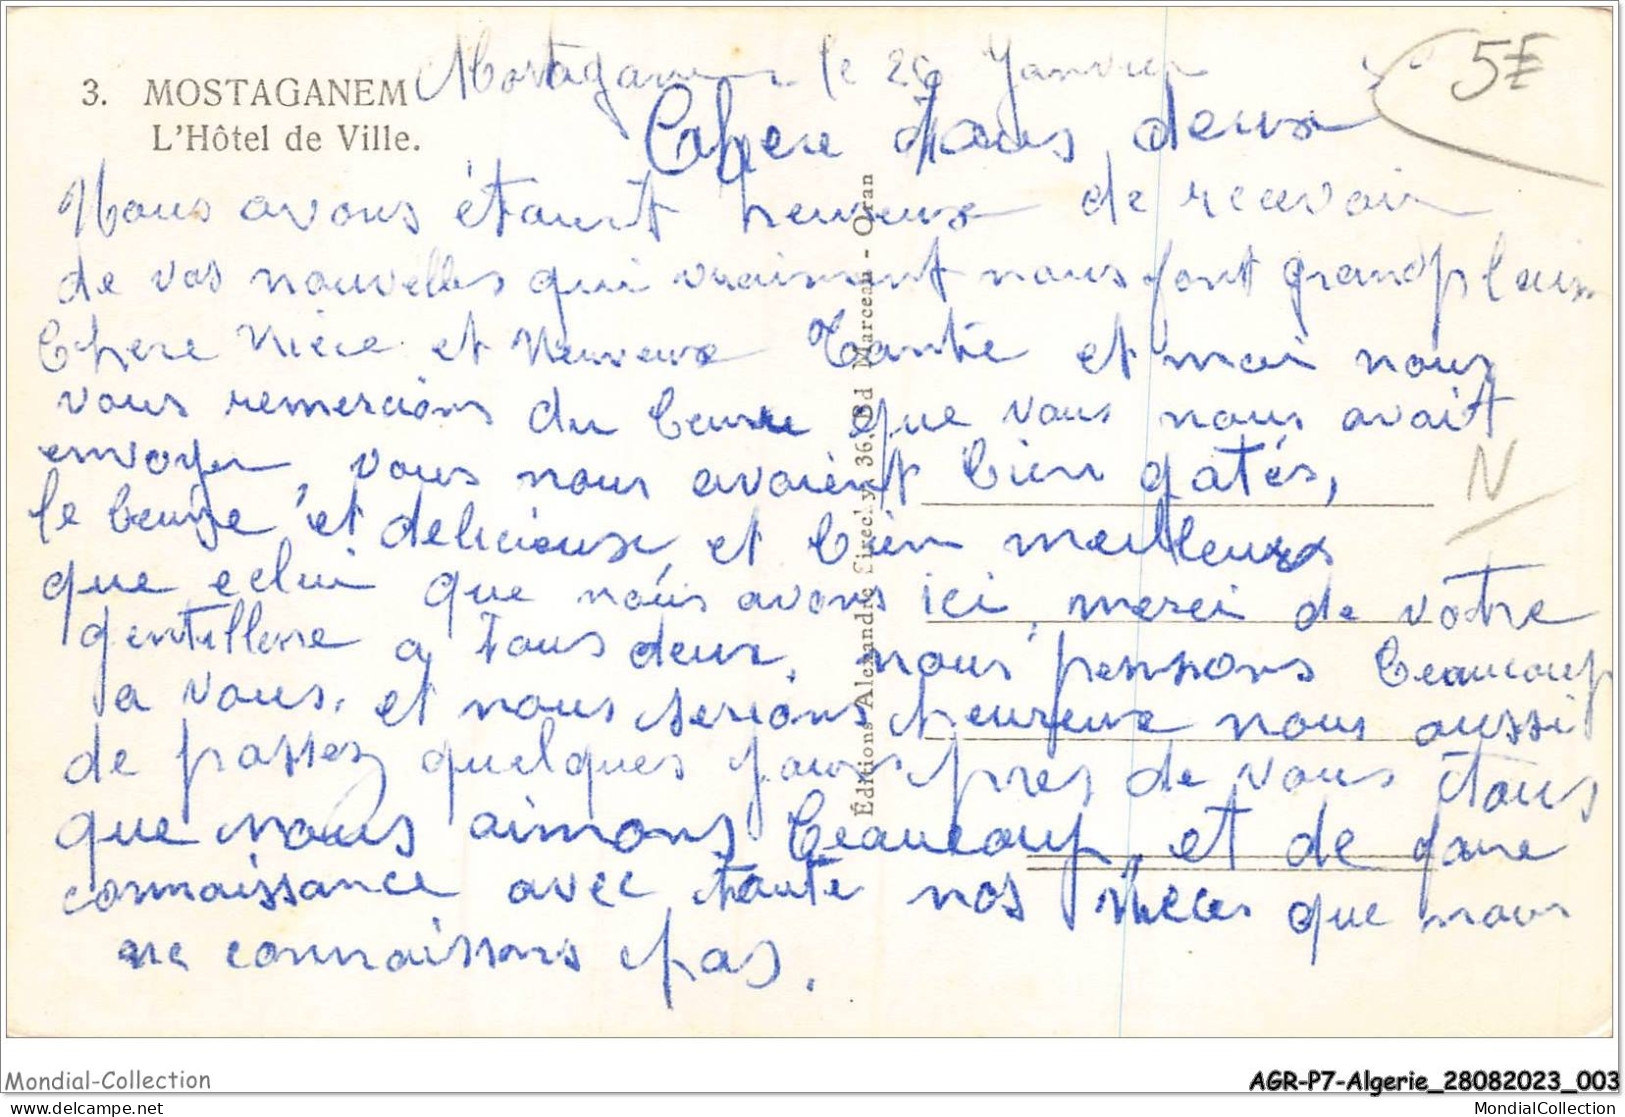 3. MOSTAGANEM
L'Hôtel de Ville.
Mostaganem le 26 Janvier
5E
Chere tous deux
Nous avons étaent heureux de recevoir
de vos nouvelles qui vraiment nous font grand plaisir
Chere Niece et Neuveux Tantie et moi nous
vous remercions du beurre que vous nous avait
envoyer, vous nous avaient bien gatés,
N
le beurre et delicieux, et bien meilleurs
que celui que nous avons ici, merci de votre
gentillesse a tous deux, nous penssons beaucoup
a vous, et nous serions heureux nous aussi
de passez quelques jours pres de vous tous
que nous aimons beaucoup, et de faire
connaissance avec toute nos nieces que nous
ne connaissons pas.
Éditions Alexandre Circely, 36, Bd Marceau - Oran
Mondial-Collection
AGR-P7-Algerie_28082023_003
www.delcampe.net
MondialCollection